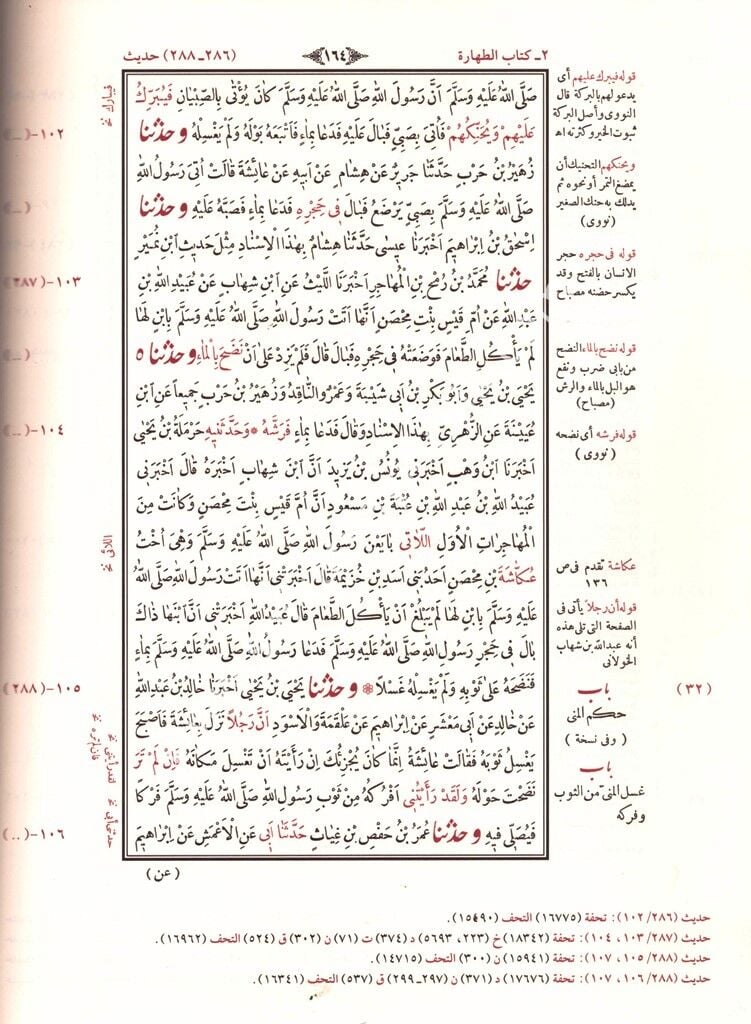 ٢ـ كتاب الطهارة
١٦٤
(٢٨٦ـ٢٨٨) حديث
صَلَّى اللهُ عَلَيْهِ وَسَلَّمَ اَنَّ رَسُولَ اللهِ صَلَّى اللهُ عَلَيْهِ وَسَلَّمَ كَانَ يُؤْتَى بِالصِّبْيَانِ فَيُبَرِّكُ
عَلَيْهِمْ وَيُحَنِّكُهُمْ فَأُتِىَ بِصَبِيٍّ فَبَالَ عَلَيْهِ فَدَعَا بِمَاءٍ فَاَتْبَعَهُ بَوْلَهُ وَلَمْ يَغْسِلْهُ وحَدَّثَنا
زُهَيْرُ بْنُ حَرْبٍ حَدَّثَنَا جَرِيرٌ عَنْ هِشَامٍ عَنْ اَبِيهِ عَنْ عَائِشَةَ قَالَتْ اُتِىَ رَسُولُ اللهِ
صَلَّى اللهُ عَلَيْهِ وَسَلَّمَ بِصَبِيٍّ يَرْضَعُ فَبَالَ فِى حَجْرِهِ فَدَعَا بِمَاءٍ فَصَبَّهُ عَلَيْهِ وحَدَّثَنا
اِسْحٰقُ بْنُ اِبْرَاهِيمَ اَخْبَرَنَا عِيسٰى حَدَّثَنَا هِشَامٌ بِهٰذَا الْاِسْنَادِ مِثْلَ حَديثِ ابْنِ نُمَيْرٍ
حَدَّثَنا مُحَمَّدُ بْنُ رُمْحِ بْنِ الْمُهَاجِرِ اَخْبَرَنَا اللَّيْثُ عَنِ ابْنِ شِهَابٍ عَنْ عُبَيْدِ اللهِ بْنِ
عَبْدِ اللهِ عَنْ اُمِّ قَيْسٍ بِنْتِ مِحْصَنٍ اَنَّهَا اَتَتْ رَسُولَ اللهِ صَلَّى اللهُ عَلَيْهِ وَسَلَّمَ بِابْنٍ لَهَا
لَمْ يَأْكُلِ الطَّعَامَ فَوَضَعَتْهُ فِى حَجْرِهِ فَبَالَ قَالَ فَلَمْ يَزِدْ عَلٰى اَنْ نَضَحَ بِالْمَاءِ وحَدَّثَناه
يَحْيَى بْنُ يَحْيٰى وَاَبُو بَكْرِ بْنُ اَبِى شَيْبَةَ وَعَمْرٌو النَّاقِدُ وَزُهَيْرُ بْنُ حَرْبٍ جَمِيعاً عَنِ ابْنِ
عُيَيْنَةَ عَنِ الزُّهْرِىِّ بِهٰذَا الْاِسْنَادِ وَقَالَ فَدَعَا بِمَاءٍ فَرَشَّهُ * وَحَدَّثَنِيهِ حَرْمَلَةُ بْنُ يَحْيٰى
اَخْبَرَنَا ابْنُ وَهْبٍ اَخْبَرَنِى يُونُسُ بْنُ يَزِيدَ اَنَّ ابْنَ شِهَابٍ اَخْبَرَهُ قَالَ اَخْبَرَنِى
عُبَيْدُ اللهِ بْنُ عَبْدِ اللهِ بْنِ عُتْبَةَ بْنِ مَسْعُودٍ اَنَّ اُمَّ قَيْسٍ بِنْتَ مِحْصَنٍ وَكَانَتْ مِنَ
الْمُهَاجِرَاتِ الْاُوَلِ اللَّاتِى بَايَعْنَ رَسُولَ اللهِ صَلَّى اللهُ عَلَيْهِ وَسَلَّمَ وَهِىَ اُخْتُ
عُكَّاشَةَ بْنِ مِحْصَنٍ اَحَدُ بَنِى اَسَدِ بْنِ خُزَيْمَةَ قَالَ اَخْبَرَتْنِى اَنَّهَا اَتَتْ رَسُولَ اللهِ صَلَّى اللهُ
عَلَيْهِ وَسَلَّمَ بِابْنٍ لَهَا لَمْ يَبْلُغْ اَنْ يَأْكُلَ الطَّعَامَ قَالَ عُبَيْدُ اللهِ اَخْبَرَتْنِى اَنَّ ابْنَهَا ذَاكَ
بَالَ فِى حَجْرِ رَسُولِ اللهِ صَلَّى اللهُ عَلَيْهِ وَسَلَّمَ فَدَعَا رَسُولُ اللهِ صَلَّى اللهُ عَلَيْهِ وَسَلَّمَ بِمَاءٍ
فَنَضَحَهُ عَلٰى ثَوْبِهِ وَلَمْ يَغْسِلْهُ غَسْلاً * وحَدَّثَنا يَحْيَى بْنُ يَحْيٰى اَخْبَرَنَا خَالِدُ بْنُ عَبْدِ اللهِ
عَنْ خَالِدٍ عَنْ اَبِى مَعْشَرٍ عَنْ اِبْرَاهِيمَ عَنْ عَلْقَمَةَ وَالْاَسْوَدِ اَنَّ رَجُلاً نَزَلَ بِعَائِشَةَ فَاَصْبَحَ
يَغْسِلُ ثَوْبَهُ فَقَالَتْ عَائِشَةُ اِنَّمَا كَانَ يُجْزِئُكَ اِنْ رَأَيْتَهُ اَنْ تَغْسِلَ مَكَانَهُ فَاِنْ لَمْ تَرَ
نَضَحْتَ حَوْلَهُ وَلَقَدْ رَأَيْتُنِى اَفْرُكُهُ مِنْ ثَوْبِ رَسُولِ اللهِ صَلَّى اللهُ عَلَيْهِ وَسَلَّمَ فَرْكاً
فَيُصَلِّى فِيهِ وحَدَّثَنا عُمَرُ بْنُ حَفْصِ بْنِ غِيَاثٍ حَدَّثَنَا اَبِى عَنِ الْاَعْمَشِ عَنْ اِبْرَاهِيمَ
(عن)
قوله فيبرك عليهم أى
يدعو لهم بالبركة قال
النووى وأصل البركة
ثبوت الخير وكثرته اهـ
ويحنكهم التحنيك أن
يمضغ التمر أو نحوه ثم
يدلك به حنك الصغير
(نووى)
قوله فى حجره حجر
الانسان بالفتح وقد
يكسر حضنه مصباح
قوله نضح بالماء النضح
من بابى ضرب ونفع
هو البل بالماء والرش
(مصباح)
قوله فرشه أى نضحه
(نووى)
عكاشة تقدم فى ص
١٣٦
قوله أن رجلاً يأتى فى
الصفحة التى تلى هذه
أنه عبدالله بن شهاب
الخولانى
(٣٢)
باب
حكم المنى
(وفى نسخة)
باب
غسل المنى من الثوب
وفركه
فيبارك نخ
١٠٢-(..)
(..)
١٠٣-(٢٨٧)
(..)
١٠٤-(..)
اللائى نخ
١٠٥-(٢٨٨)
لقد رأيتنى نخ
فان لم تره نخ
حدثنى أبى نخ
١٠٦-(..)
حديث (١٠٢/٢٨٦): تحفة (١٦٧٧٥) التحف (١٥٤٩٠).
حديث (١٠٣/٢٨٧، ١٠٤): تحفة (١٨٣٤٢) خ (٢٢٣، ٥٦٩٣) د (٣٧٤) ت (٧١) ن (٣٠٢) ق (٥٢٤) التحف (١٦٩٦٢).
حديث (١٠٥/٢٨٨، ١٠٧): تحفة (١٥٩٤١) ن (٣٠٠) التحف (١٤٧١٥).
حديث (١٠٦/٢٨٨، ١٠٧): تحفة (١٧٦٧٦) د (٣٧١) ن (٢٩٧ـ٢٩٩) ق (٥٣٧) التحف (١٦٣٤١).